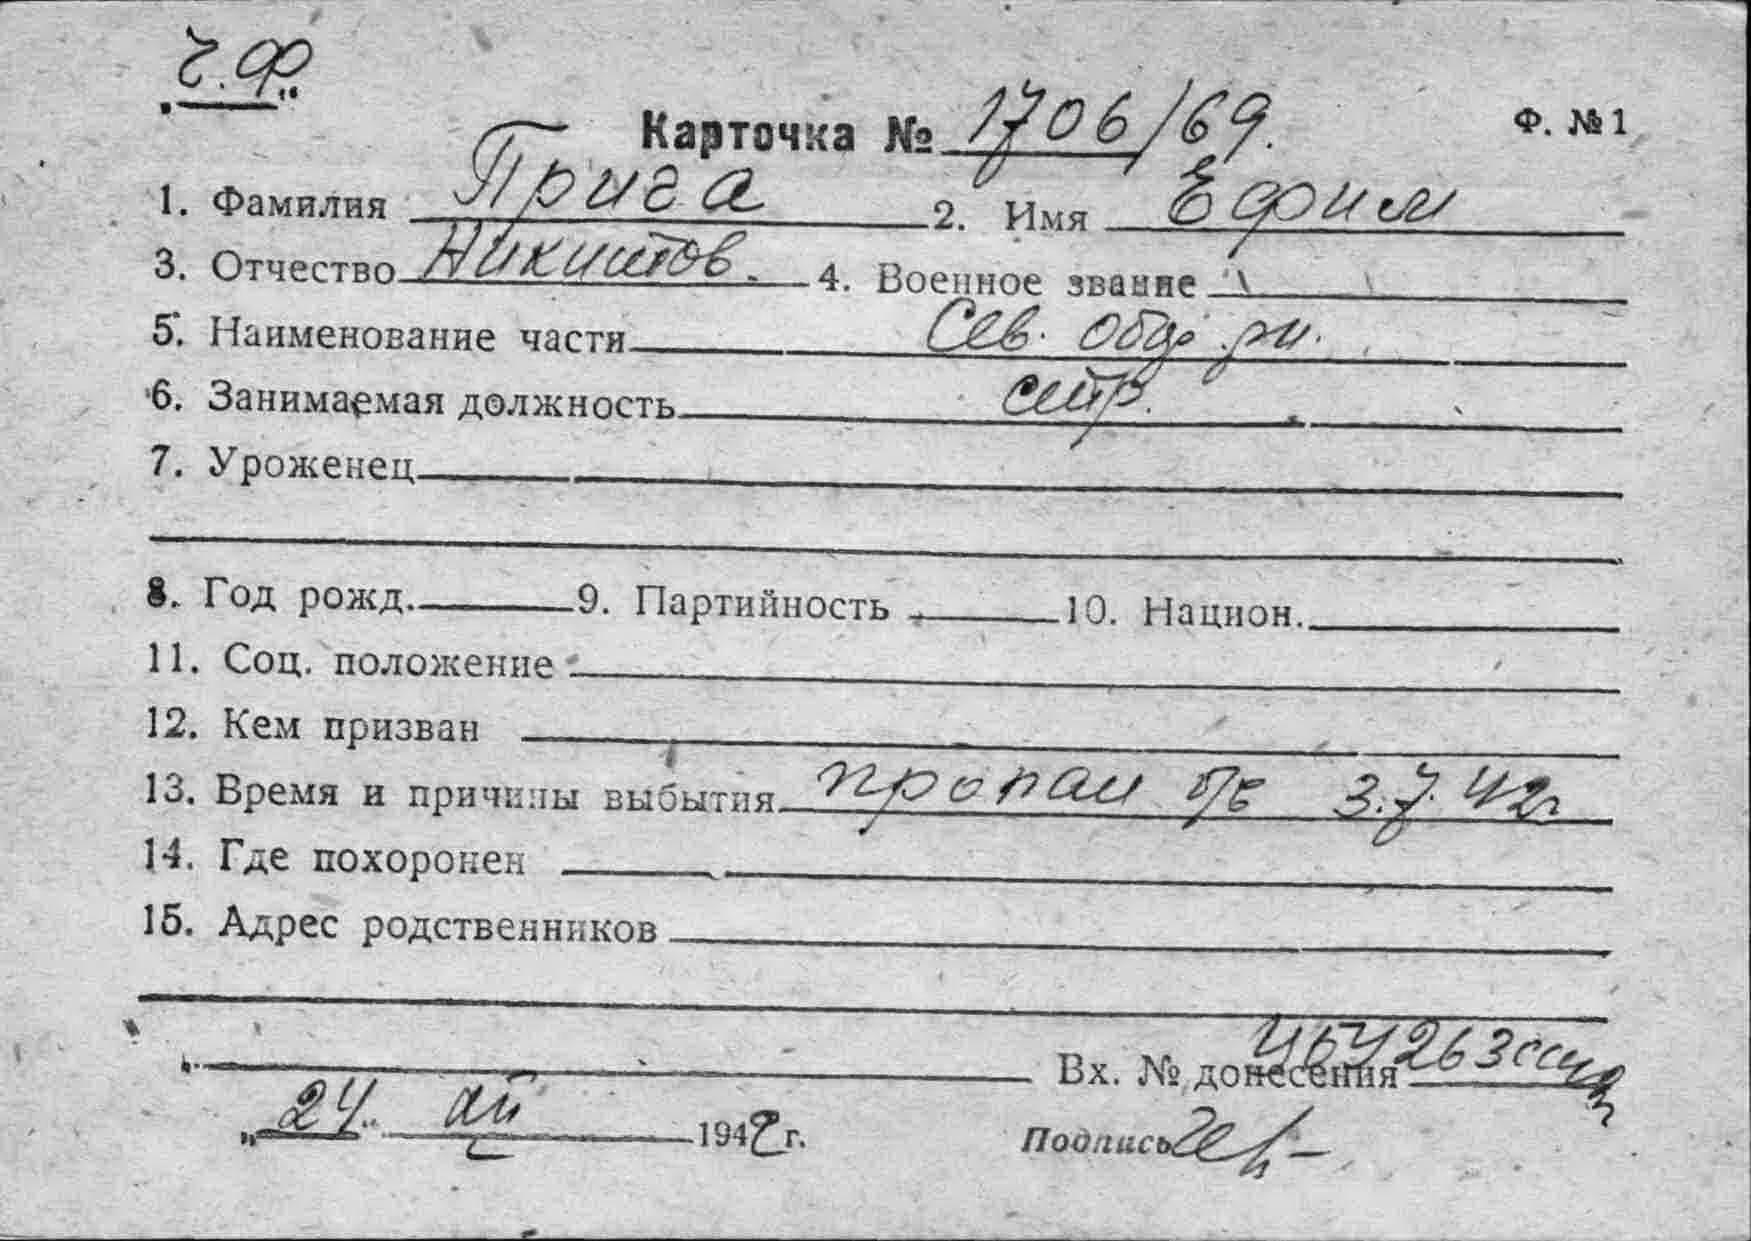 Ч.Ф
Карточка № 1706/69. Ф. № 1
1. Фамилия Прига 2. Имя Ефим
3. Отчество Никитов. 4. Военное звание
5. Наименование части Сев.
6. Занимаемая должность стр.
7. Уроженец
8. Год рожд. 9. Партийность 10. Национ.
11. Соц. положение
12. Кем призван
13. Время и причины выбытия пропал б/в 3.7.42г
14. Где похоронен
15. Адрес родственников
Вх. № донесения
„24“ 194 г. Подпись